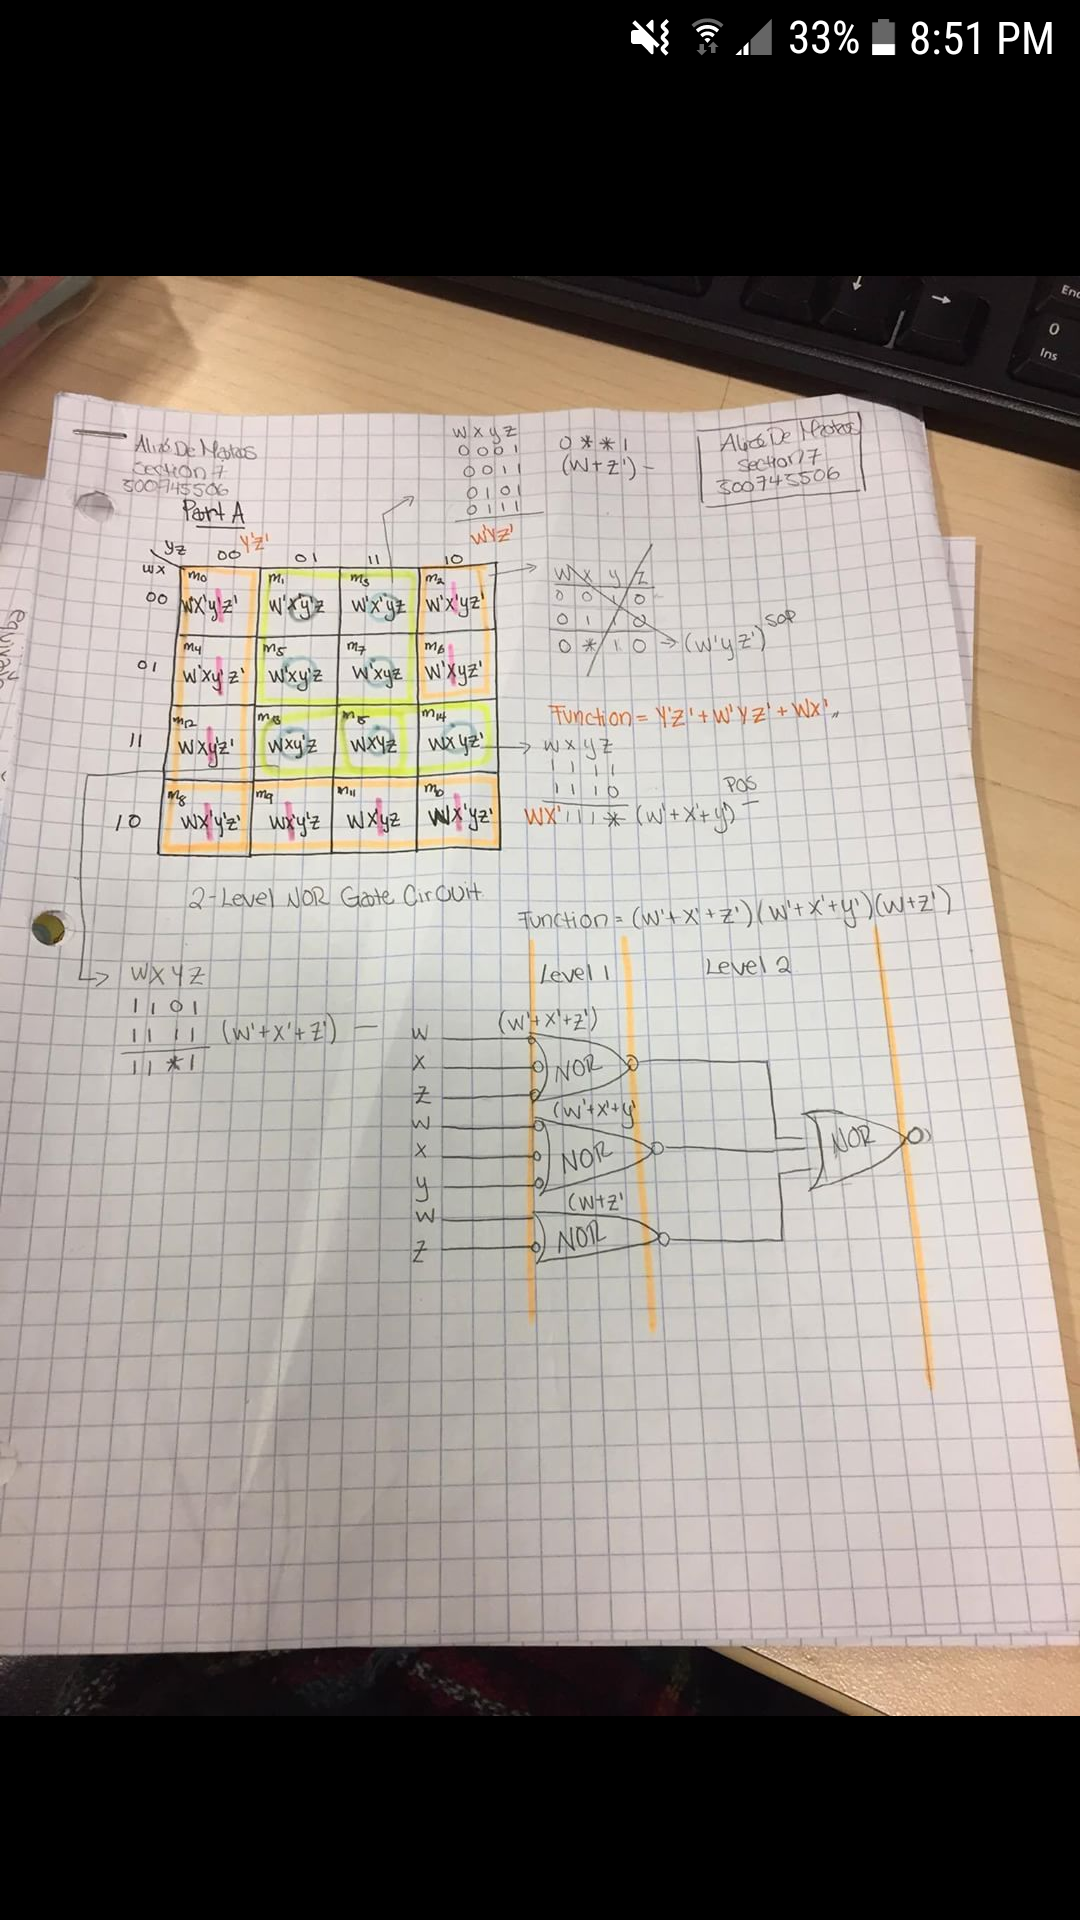 33% 8:51 PM
End
0
Ins
Section 7
300745506
Part A
w x y z
0 0 0 1
0 0 1 1
0 1 0 1
0 1 1 1
W'YZ'
0 * * 1
(W+Z') -
Section 7
300745506
yz
wx
00 Y'Z' 01 11 10
00
m0 m1 m3 m2
WX'y'z' W'X'y'z W'X'yz W'X'yz'
01
m4 m5 m7 m6
W'xy'z' W'xy'z W'xyz W'xyz'
11
m12 m13 m15 m14
WXy'z' Wxy'z WXYZ WXyz'
10
m8 m9 m11 m10
WX'y'z' WX'y'z WX'yz WX'yz'
W x y z
0 0 1 0
0 1 1 0
0 * 1 0 → (W'yz') SOP
Function = Y'Z' + W'YZ' + WX'
W x y z
1 1 1 1
1 1 1 0
WX' 1 1 1 * (W'+X'+y') POS
2-Level NOR Gate Circuit
Function = (W'+X'+Z')(W'+X'+y')(W+Z')
WXYZ
1 1 0 1
1 1 1 1 (W'+X'+Z') —
1 1 * 1
Level 1 Level 2
(W'+X'+Z')
W
X
Z
NOR
(W'+X'+y'
W
X
y
NOR
(W+Z'
W
Z
NOR
NOR